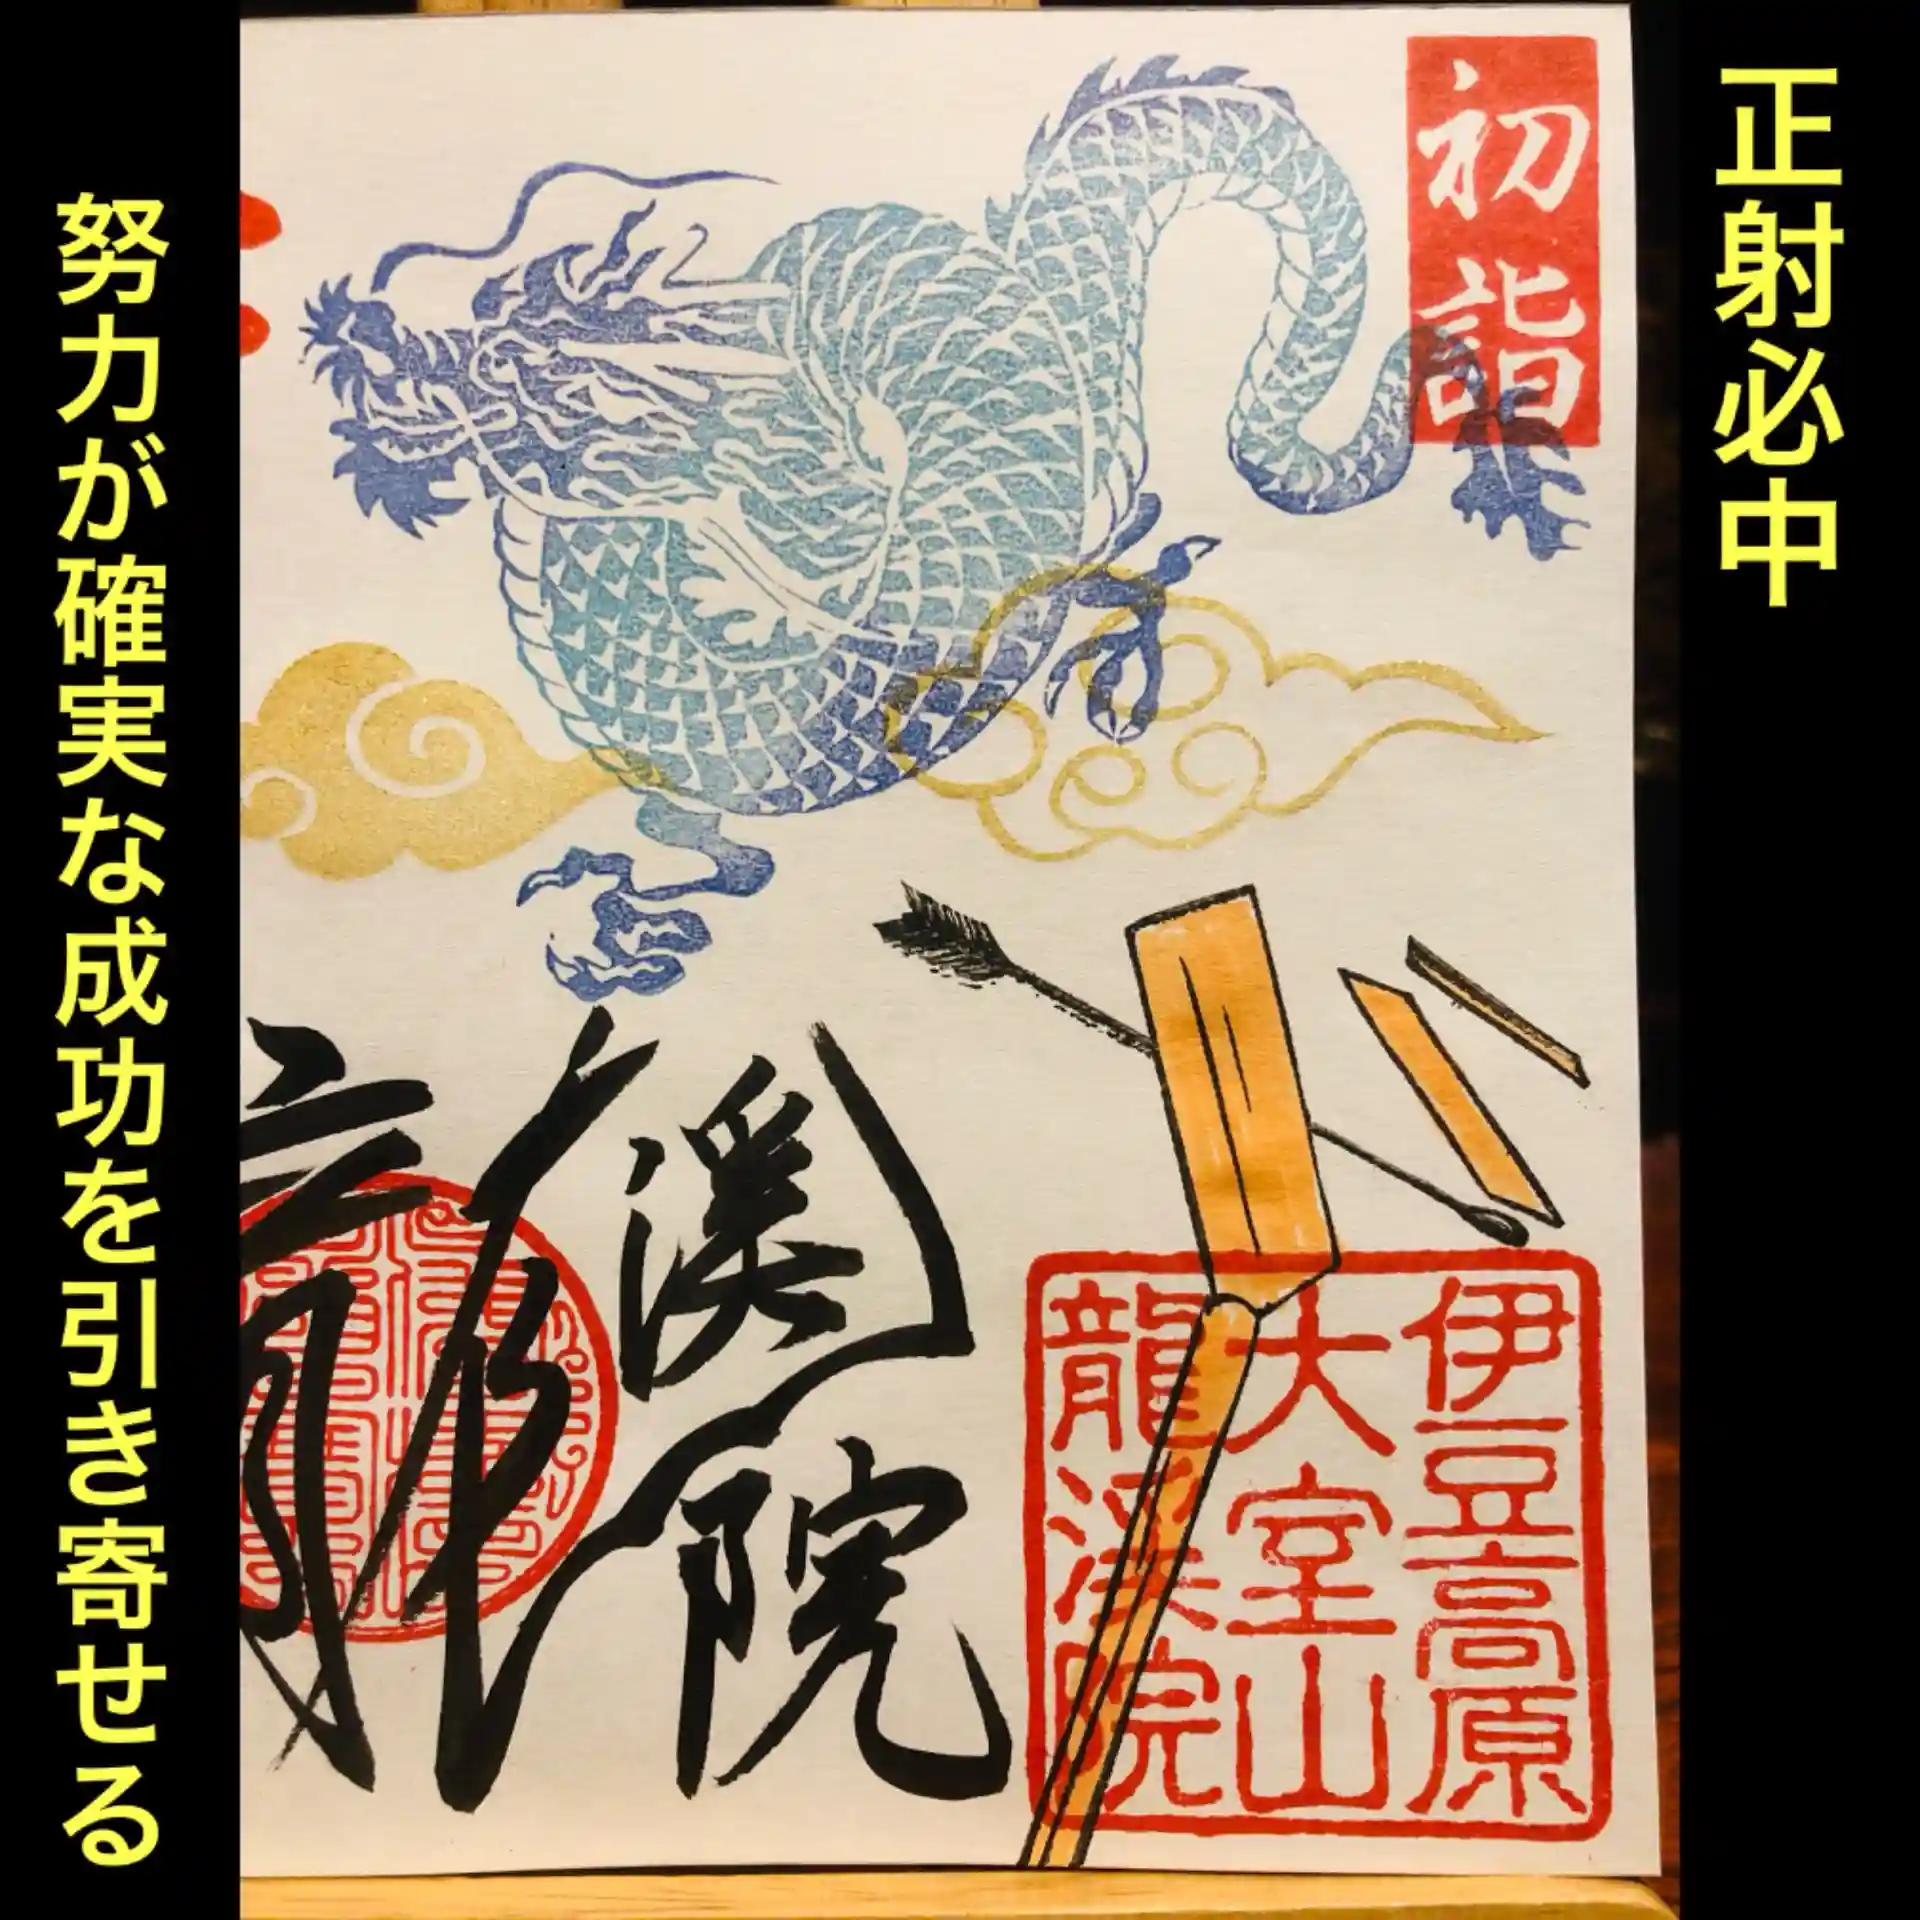 正射必中
努力が確実な成功を引き寄せる
初詣
龍
溪
院
伊豆高原
大室山
龍溪院